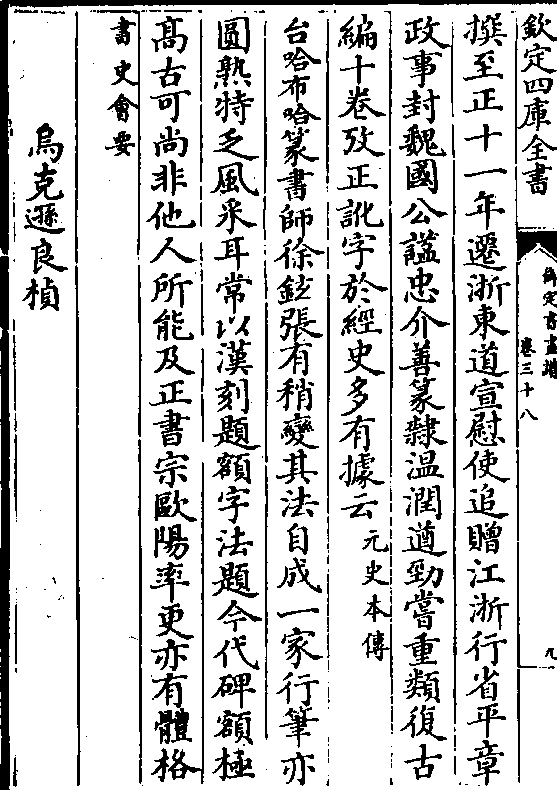 欽定四庫全書
卷三十八
九
撰至正十一年遷浙東道宣慰使追贈江浙行省平章
政事封魏國公諡忠介善篆隸温潤遒勁嘗重類復古
編十卷攷正訛字於經史多有據云元史本傳
台哈布哈篆書師徐鉉張有稍變其法自成一家行筆亦
圓熟特乏風采耳常以漢刻題額字法題今代碑額極
髙古可尚非他人所能及正書宗歐陽率更亦有體格
書史會要
烏克遜良楨